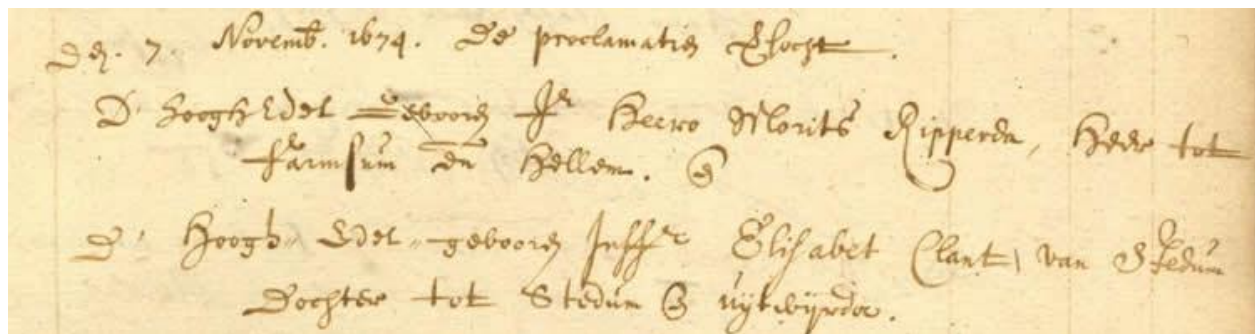 Den. 7. Novemb. 1674. De proclamatien
D' Hoogh Edel Gebooren Jr Heere Morits Ripperda, Heer tot
Farmsum en Hellem. &
D' Hoogh-Edel-gebooren Juffr Elisabet Clant, van Stedum
Dochter tot Stedum & uijtwijrda.